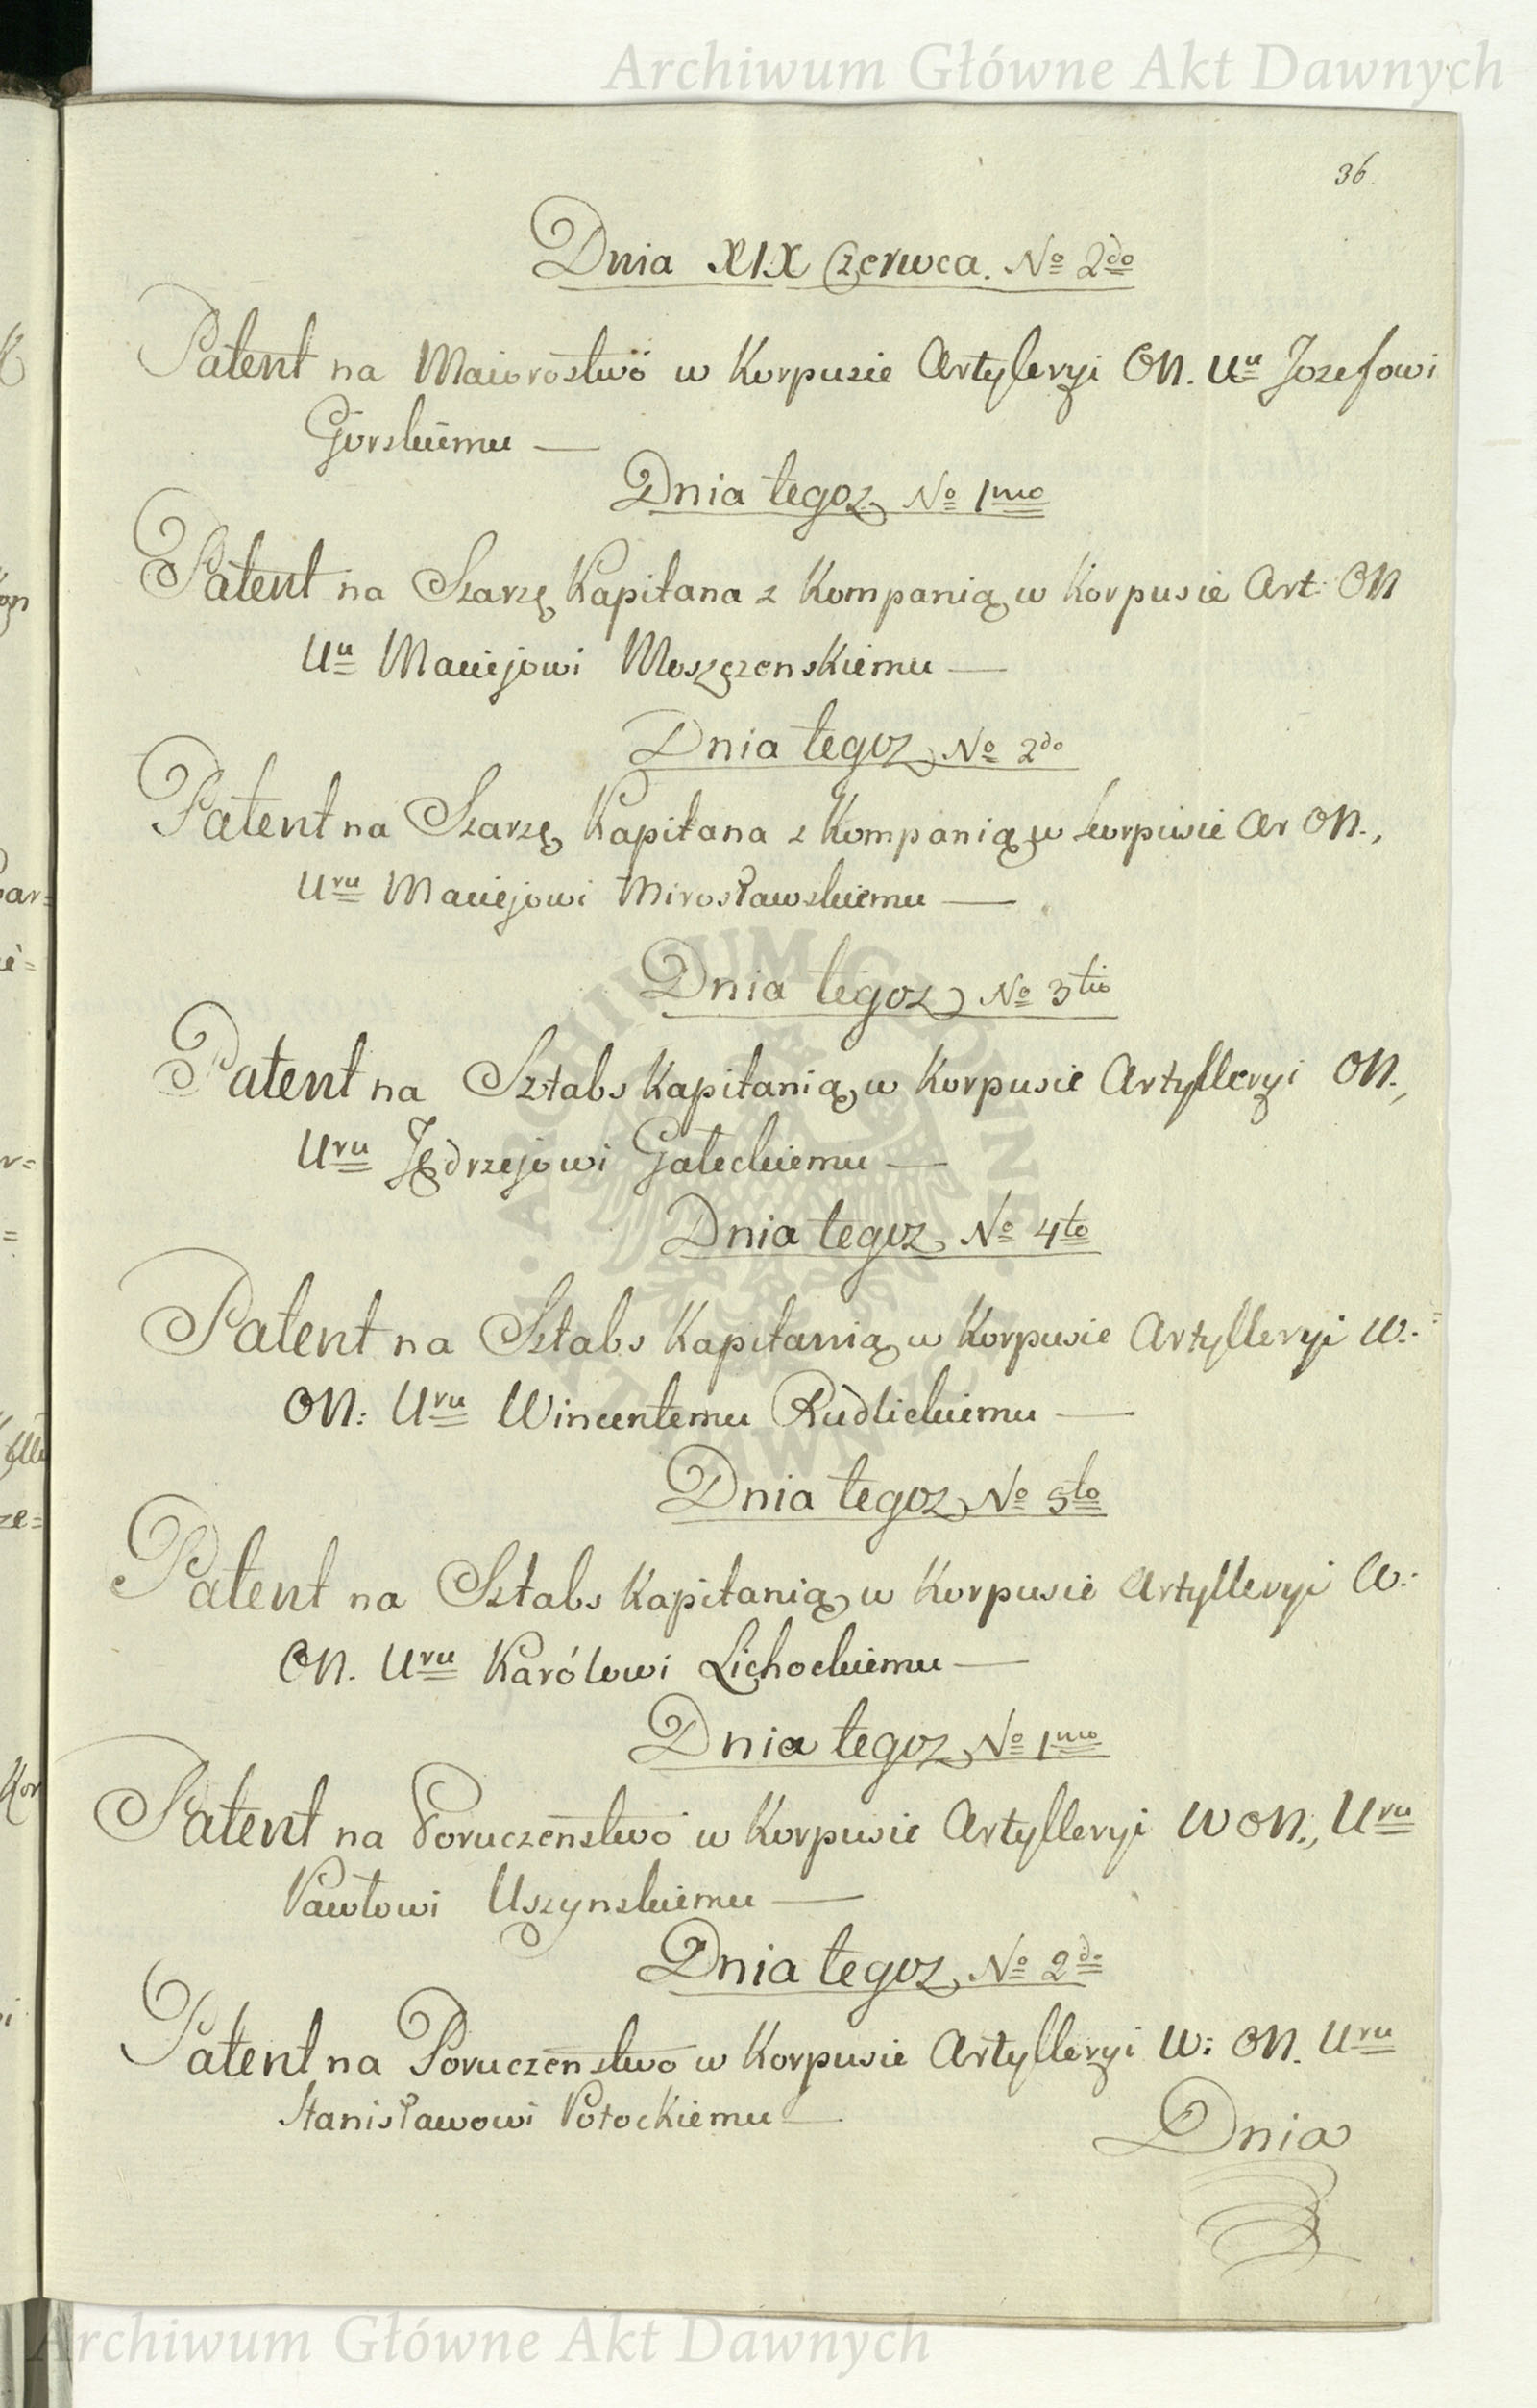 Archiwum Główne Akt Dawnych
36.
Dnia XIX Czerwca. No 2do
Patent na Maiorostwo w Korpusie Artyleryi ON. Uu Jozefowi
Gorskiemu —
Dnia tegoz No 1mo
Patent na Szarzę Kapitana z Kompanią w Korpusie Art: ON
Uu Maciejowi Moszczenskiemu —
Dnia tegoz No 2do
Patent na Szarzę Kapitana z Kompanią w korpusie Ar ON.,
Uru Maciejowi Mirosławskiemu —
Dnia tegoz No 3tio
Patent na Sztabs Kapitanią w Korpusie Artylleryi ON.,
Uru Jędrzejowi Gałeckiemu —
Dnia tegoz No 4to
Patent na Sztabs Kapitanią w Korpusie Artylleryi W:
ON: Uru Wincentemu Rudlickiemu —
Dnia tegoz No 5to
Patent na Sztabs Kapitanią w Korpusie Artylleryi W:
ON. Uru Karólowi Lichockiemu —
Dnia tegoz No 1mo
Patent na Poruczenstwo w Korpusie Artylleryi W ON., Uru
Pawłowi Uszynskiemu —
Dnia tegoz No 2do
Patent na Poruczenstwo w Korpusie Artylleryi W: ON. Uru
Stanisławowi Potockiemu —
Dnia
Archiwum Główne Akt Dawnych